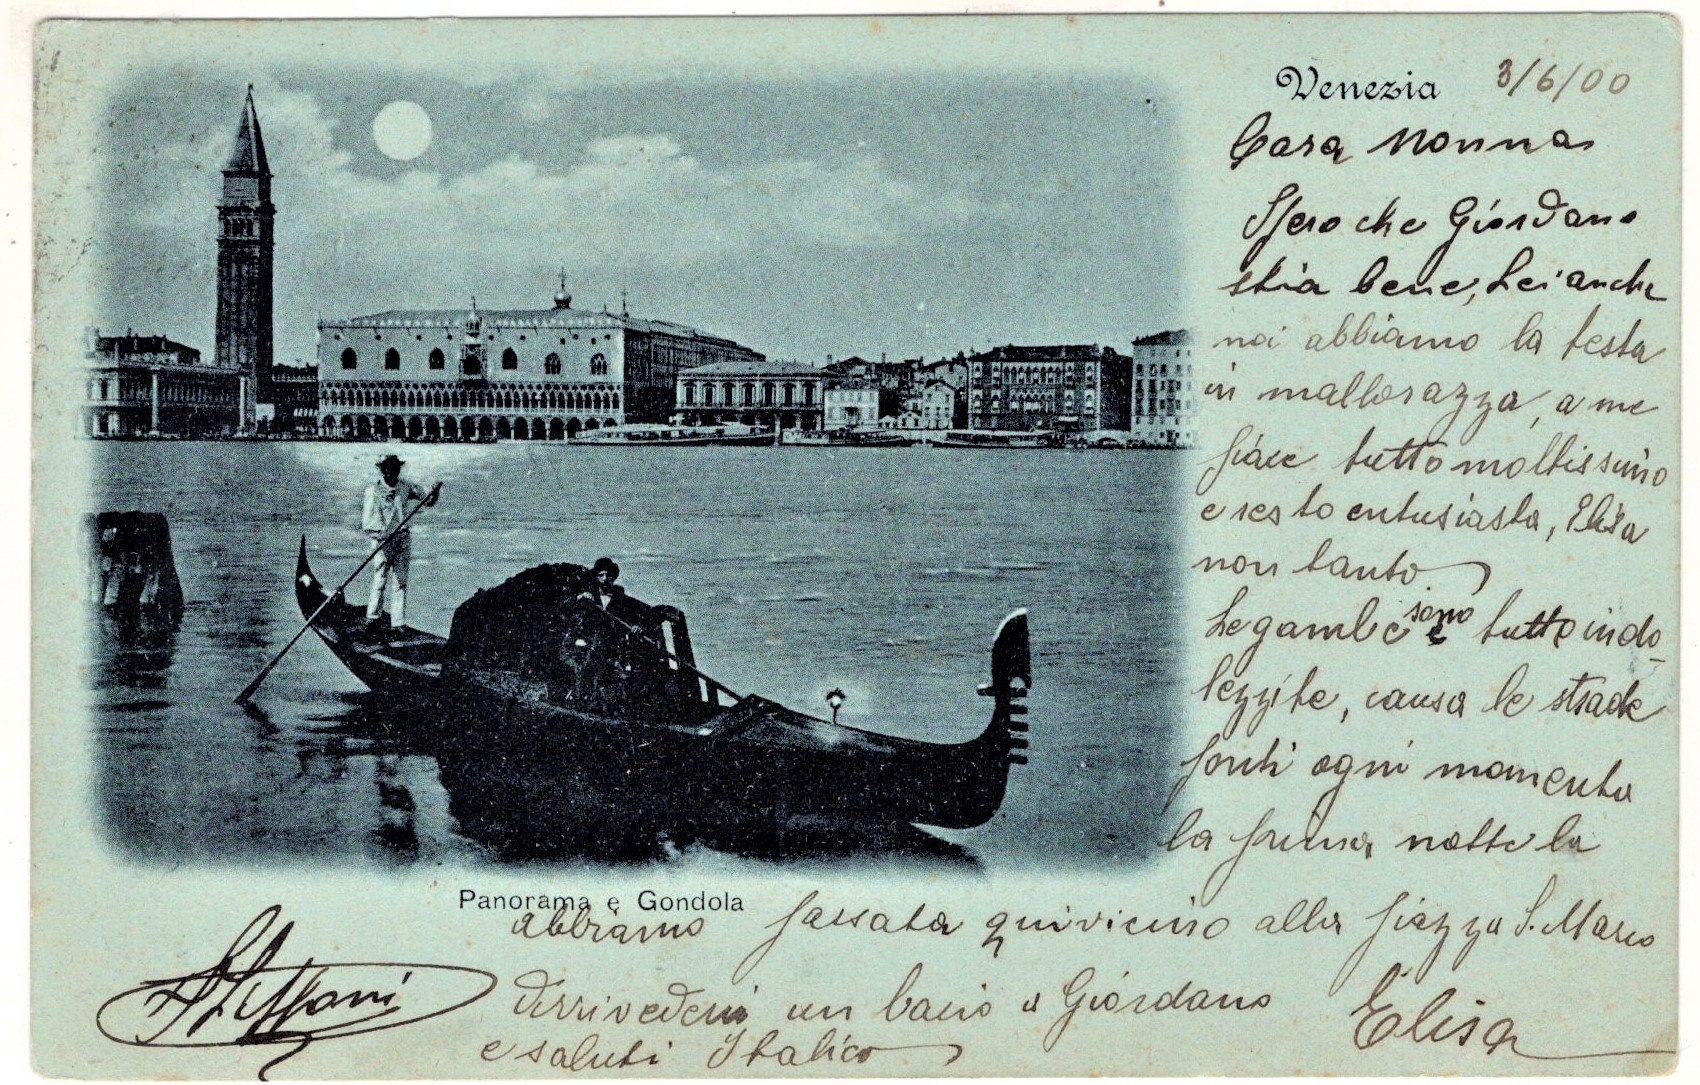 Venezia 3/6/00
Cara Nonna
Spero che Giordano
stia bene, Lei anche
noi abbiamo la testa
in mallorazza, a me
piace tutto moltissimo
e resto entusiasta, Elisa
non tanto
Le gambe sono tutte indo-
lezzite, causa le strade
ponti ogni momento
la prima notte la
Panorama e Gondola
abbiamo passata qui vicino alla piazza S. Marco
Arrivederci un bacio a Giordano
e saluti Italico
Elisa